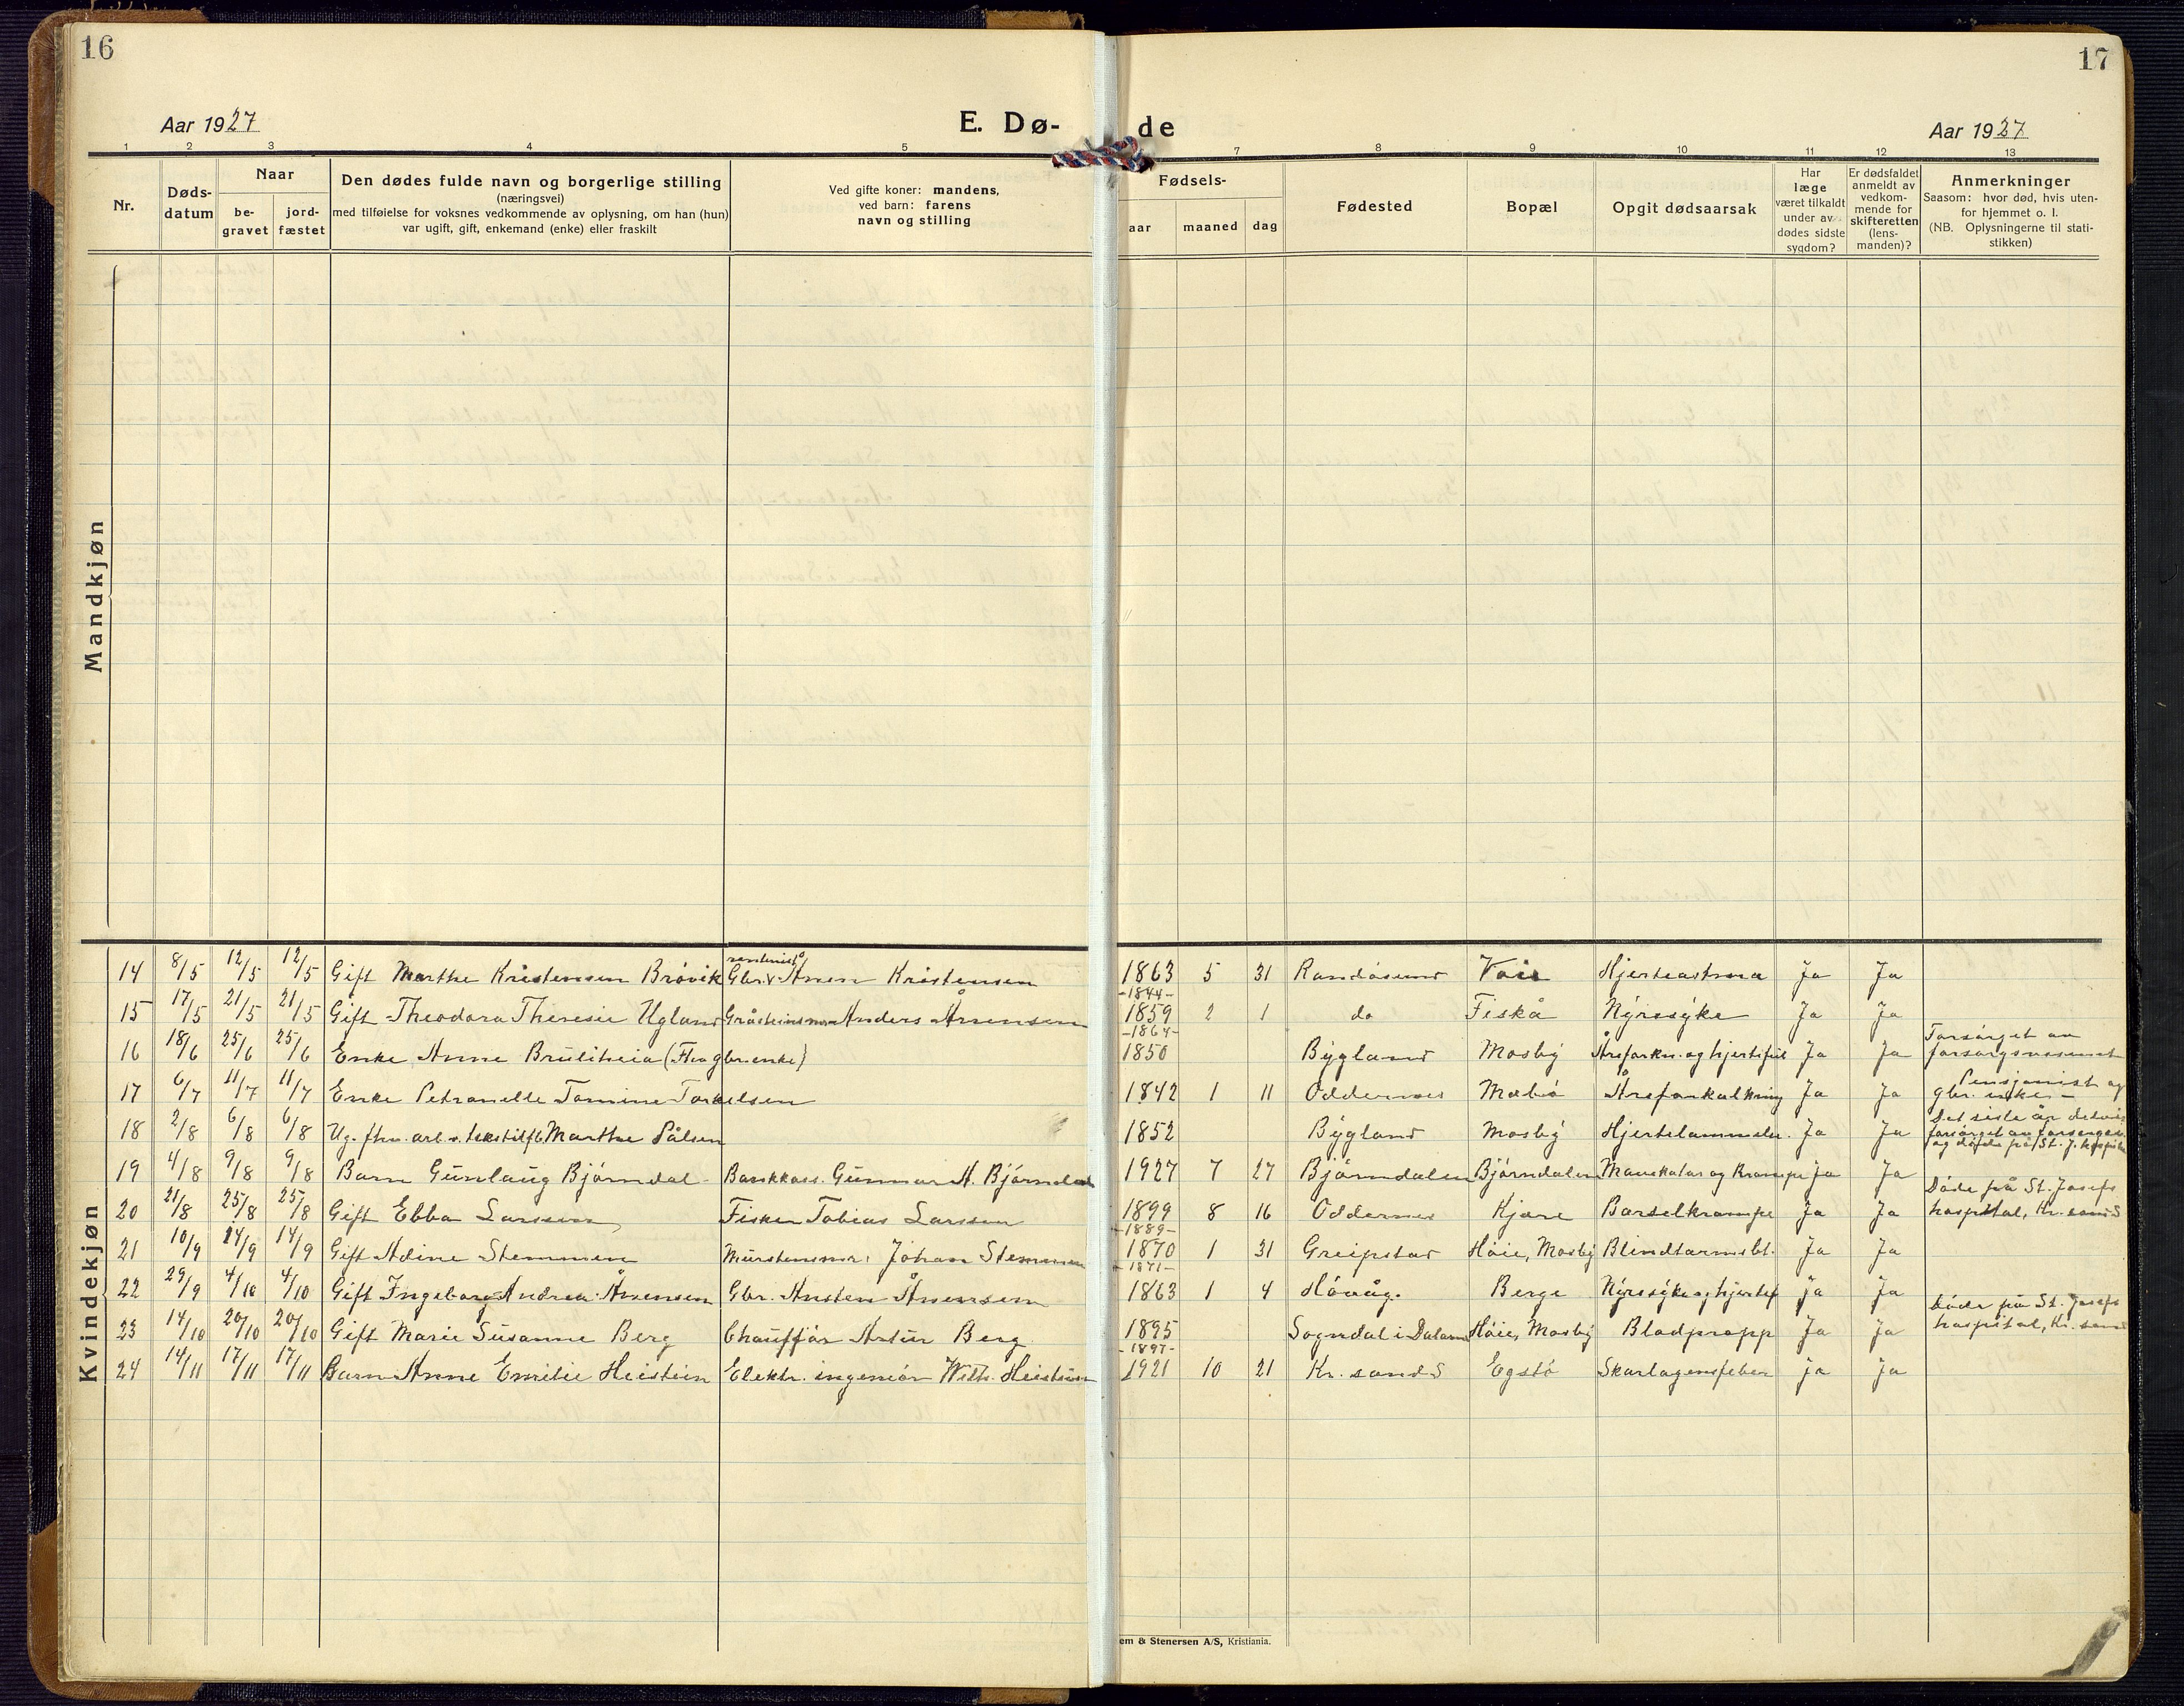 16
17
Aar 1927
E. Dø-
de
Aar 1927
1 2 3 4 5 7 8 9 10 11 12 13
Nr.
Døds-
datum
Naar
be-
gravet
jord-
fæstet
Den dødes fulde navn og borgerlige stilling
(næringsvei)
med tilføielse for voksnes vedkommende av oplysning, om han (hun)
var ugift, gift, enkemand (enke) eller fraskilt
Ved gifte koner: mandens,
ved barn: farens
navn og stilling
Fødsels-
aar maaned dag
Fødested
Bopæl
Opgit dødsaarsak
Har
læge
været tilkaldt
under av-
dødes sidste
sygdom?
Er dødsfaldet
anmeldt av
vedkom-
mende for
skifteretten
(lens-
manden)?
Anmerkninger
Saasom: hvor død, hvis uten-
for hjemmet o. l.
(NB. Oplysningerne til stati-
stikken)
Mandkjøn
Kvindekjøn
14 8/5 12/5 12/5 Gift Marthe Kristensen Brövik Gbr. Anen Kristensen 1863 5 31 Randösund Voie Hjerteastma Ja Ja
-1844-
15 17/5 21/5 21/5 Gift Theodora Theresie Ugland Gråsteinsmur Anders Ånensen 1859 2 1 do Fiskå Nyresyke Ja Ja
-1864-
16 18/6 25/6 25/6 Enke Anne Bruliheia (gbr.enke) 1850 Bygland Mosby Åreforkn. og hjertefeil Ja Ja Forsörget av
forsorgsvesenet
17 6/7 11/7 11/7 Enke Petranelle Tomine Torkelsen 1842 1 11 Oddernes Mæbö Åreforkalkning Ja Ja Pensjonist og
gbr. enke.-
18 2/8 6/8 6/8 Ug. fhv. arb. v. tekstilfb. Marthe Pålsen 1852 Bygland Mosby Hjertelammelse. Ja Ja Det siste år delvis
forsörget av
og döde på St. J. hospital
19 4/8 9/8 9/8 Barn Gunlaug Björndal Bankkass. Gunnar A. Björndal 1927 7 27 Björndalen Björndalen Mavekatar og Krampe Ja Ja
20 21/8 25/8 25/8 Gift Ebba Larssen Fisker Tobias Larssen 1899 8 16 Oddernes Kjære Barselkrampe Ja Ja Döde på St. Josefs
hospital, Kr. sand S
-1889-
21 10/9 14/9 14/9 Gift Adine Stemmen Murstensmr. Johan Stemmen 1870 1 31 Greipstad Höie, Mosby Blindtarmsbt. Ja Ja
-1871-
22 29/9 4/10 4/10 Gift Ingeborg Andrea Ånensen Gbr. Ansten Ånensen 1863 1 4 Hövåg. Berge Nyresyke og hjertef ja Ja
23 14/10 20/10 20/10 Gift Marie Susanne Berg Chaufför Artur Berg 1895 Sogndal i Dalane Höie, Mosby Blodpropp Ja Ja döde på St. Josefs
hospital, Kr. sand
-1897-
24 14/11 17/11 17/11 Barn Anne Emilie Heistein Elektr. ingeniör Wilh. Heistein 1921 10 21 Kr. sand S Egstö Skarlagensfeber ja Ja
em & Stenersen A/S, Kristiania.